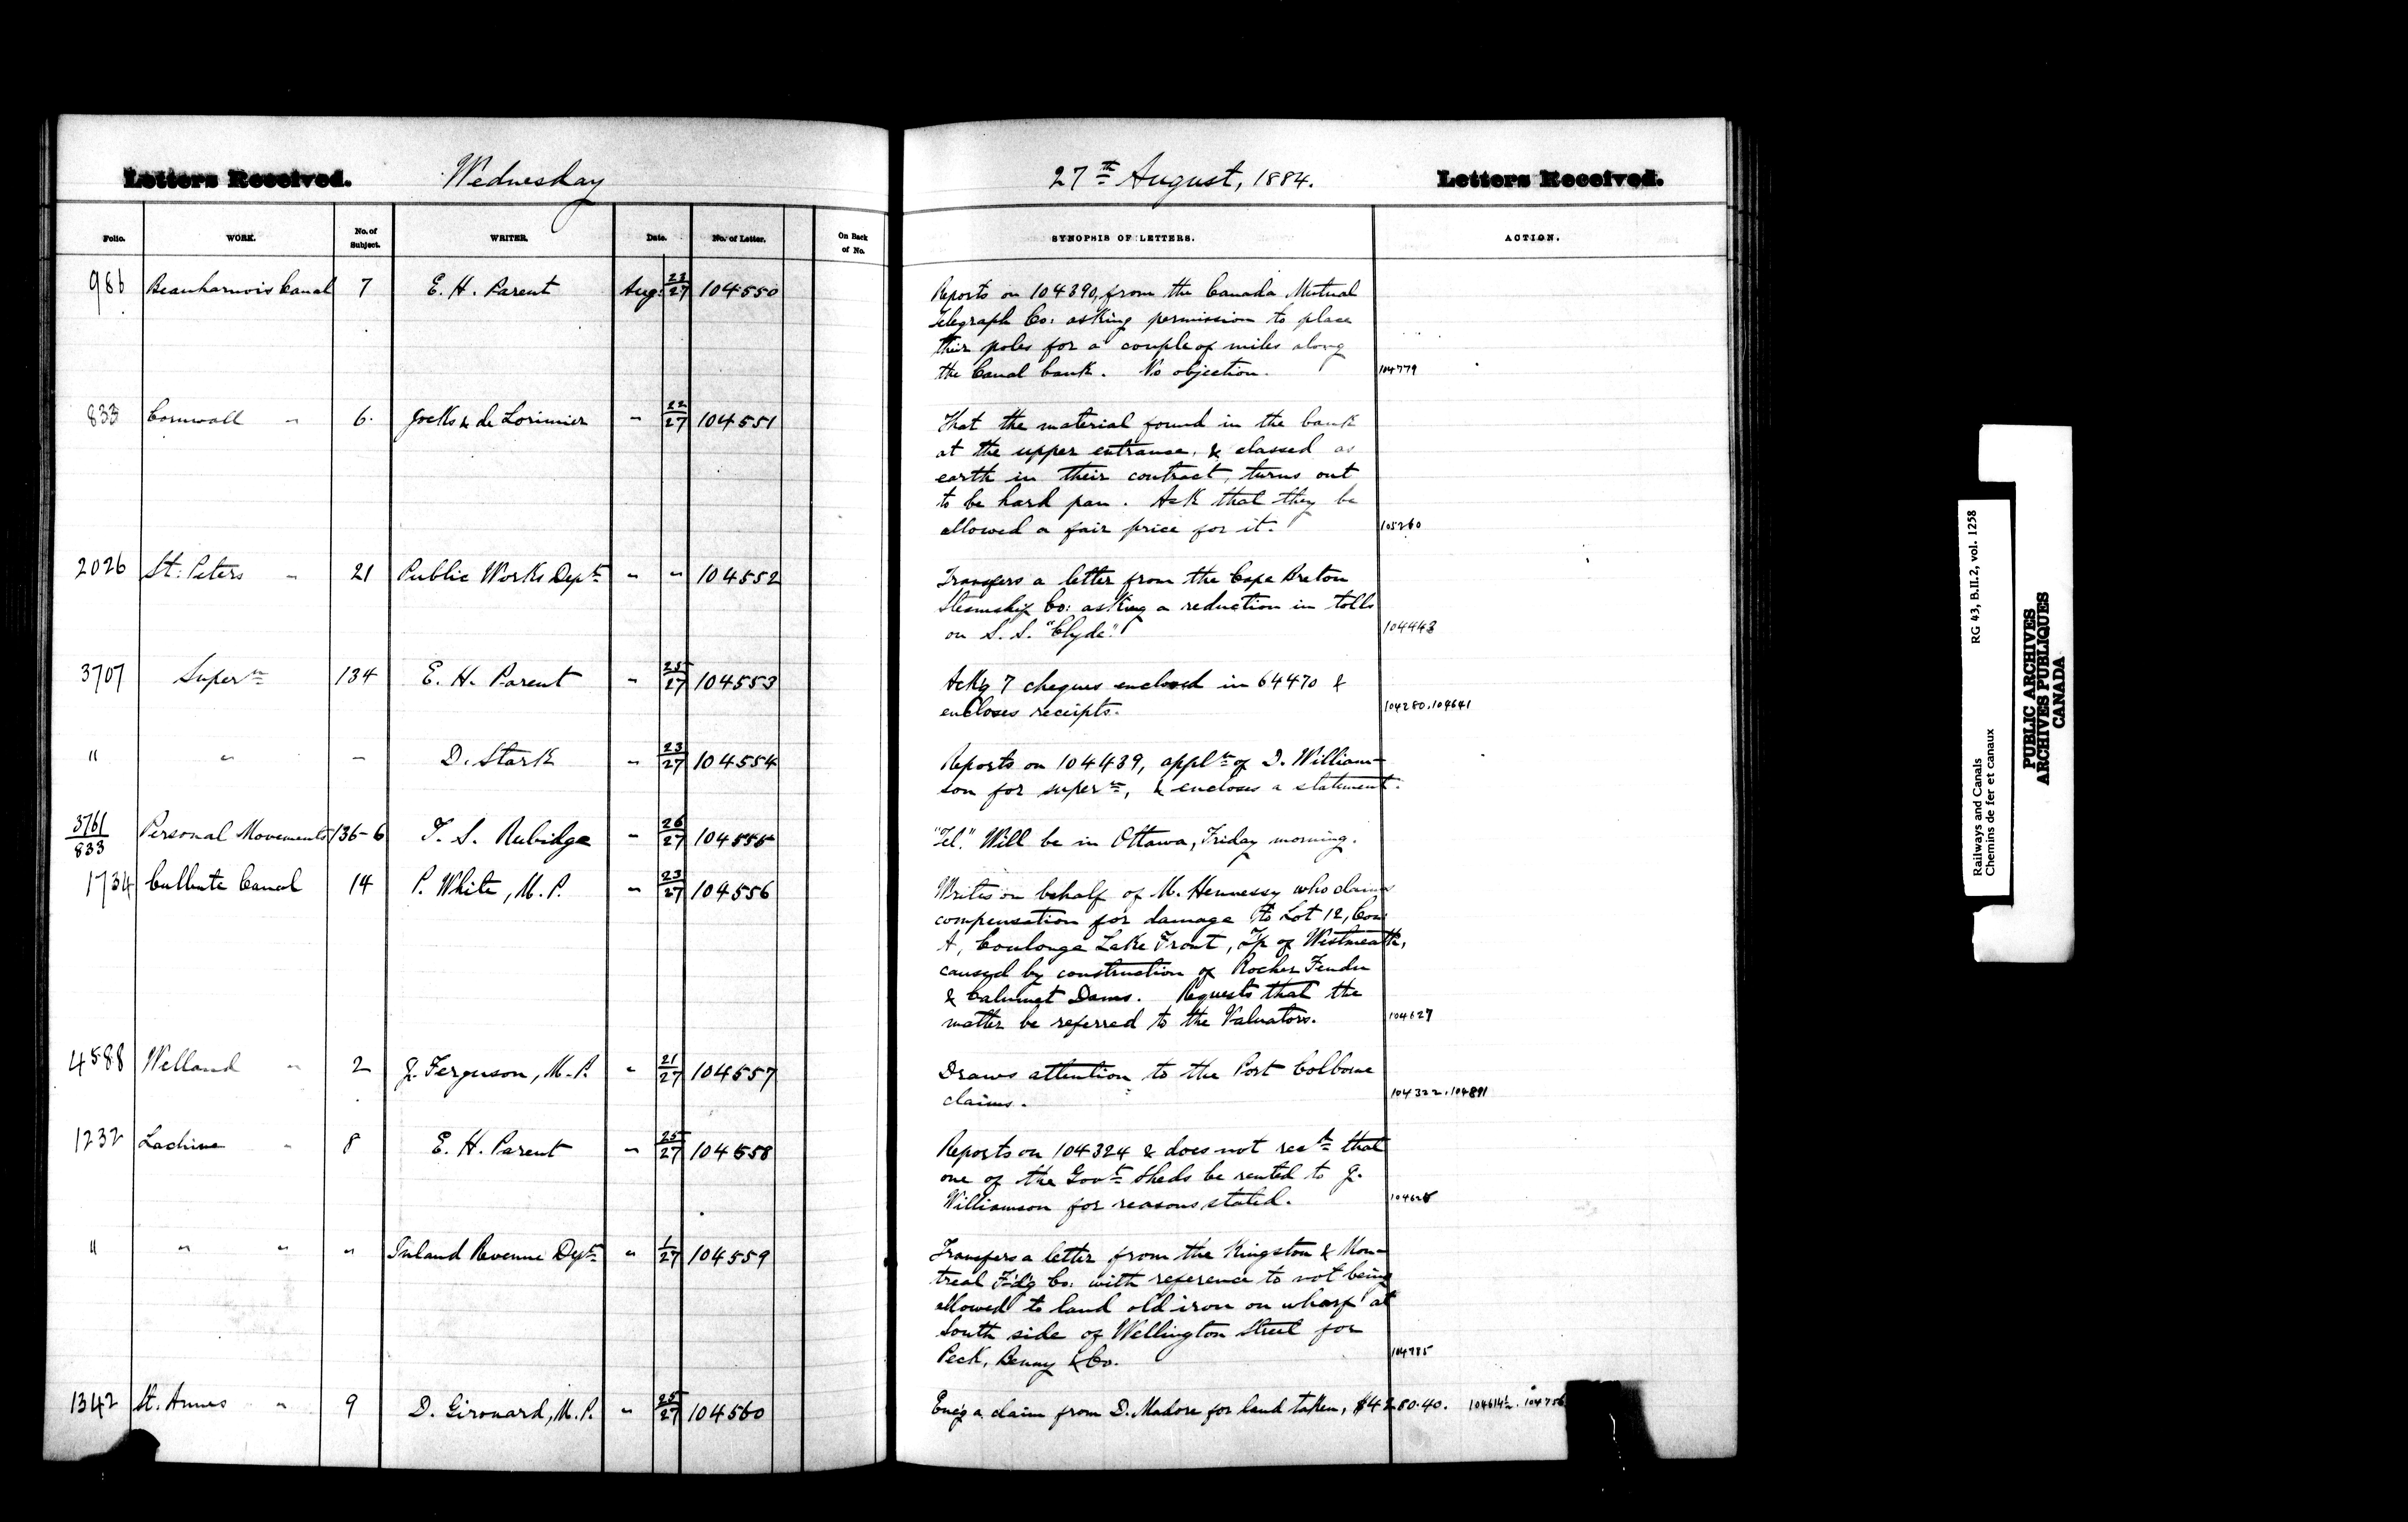 Letters Received. Wednesday 27th August, 1884. Letters Received.
Folio. WORK. No. of Subject. WRITER. Date. No. of Letter. On Back of No. SYNOPSIS OF LETTERS. ACTION.
986 Beauharnois Canal 7 E. H. Parent Aug: 23/27 104550 Reports on 104390, from the Canada Mutual
Telegraph Co: asking permission to place
their poles for a couple of miles along
the Canal bank. No objection. 104779
833 Cornwall " 6. Jocks & de Lorimier " 22/27 104551 That the material found in the bank
at the upper entrance, & classed as
earth in their contract, turns out
to be hard pan. Ask that they be
allowed a fair price for it. 105260
2026 St. Peters " 21 Public Works Dept " " 104552 Transfers a letter from the Cape Breton
Steamship Co: asking a reduction in tolls
on S. S. "Clyde". 104443
3707 Supern 134 E. H. Parent " 25/27 104553 Ackg 7 cheques enclosed in 64470 &
encloses receipts. 104280. 104641
" " " D. Stark " 23/27 104554 Reports on 104439, appln of D. William-
son for supern, & encloses a statement.
3761/833 Personal Movements 136-6 T. S. Rubidge " 26/27 104555 "Tel." Will be in Ottawa, Friday morning.
1734 Culbute Canal 14 P. White, M. P. " 23/27 104556 Writes on behalf of M. Hennessy who claims
compensation for damage to Lot 12, Con
A, Coulonge Lake Front, Tp of Westmeath,
caused by construction of Rocher Fendu
& Calumet Dams. Requests that the
matter be referred to the Valuators. 104627
4588 Welland " 2 J. Ferguson, M. P. " 21/27 104557 Draws attention to the Port Colborne
claims. 104322. 104891
1232 Lachine " 8 E. H. Parent " 25/27 104558 Reports on 104324 & does not recd that
one of the Govt Sheds be rented to J.
Williamson for reasons stated.
" " " " Inland Revenue Dept " 1/27 104559 Transfers a letter from the Kingston & Mon-
treal F'd'g Co: with reference to not being
allowed to land old iron on wharf at
South side of Wellington Street for
Peck, Benny & Co. 104785
1342 St. Annes " 9 D. Girouard, M. P. " 25/27 104560 Enc'g a claim from D. Madore for land taken, $4280.40. 104756
Railways and Canals
Chemins de fer et canaux
RG 43, B.II.2, vol. 1258
PUBLIC ARCHIVES
ARCHIVES PUBLIQUES
CANADA